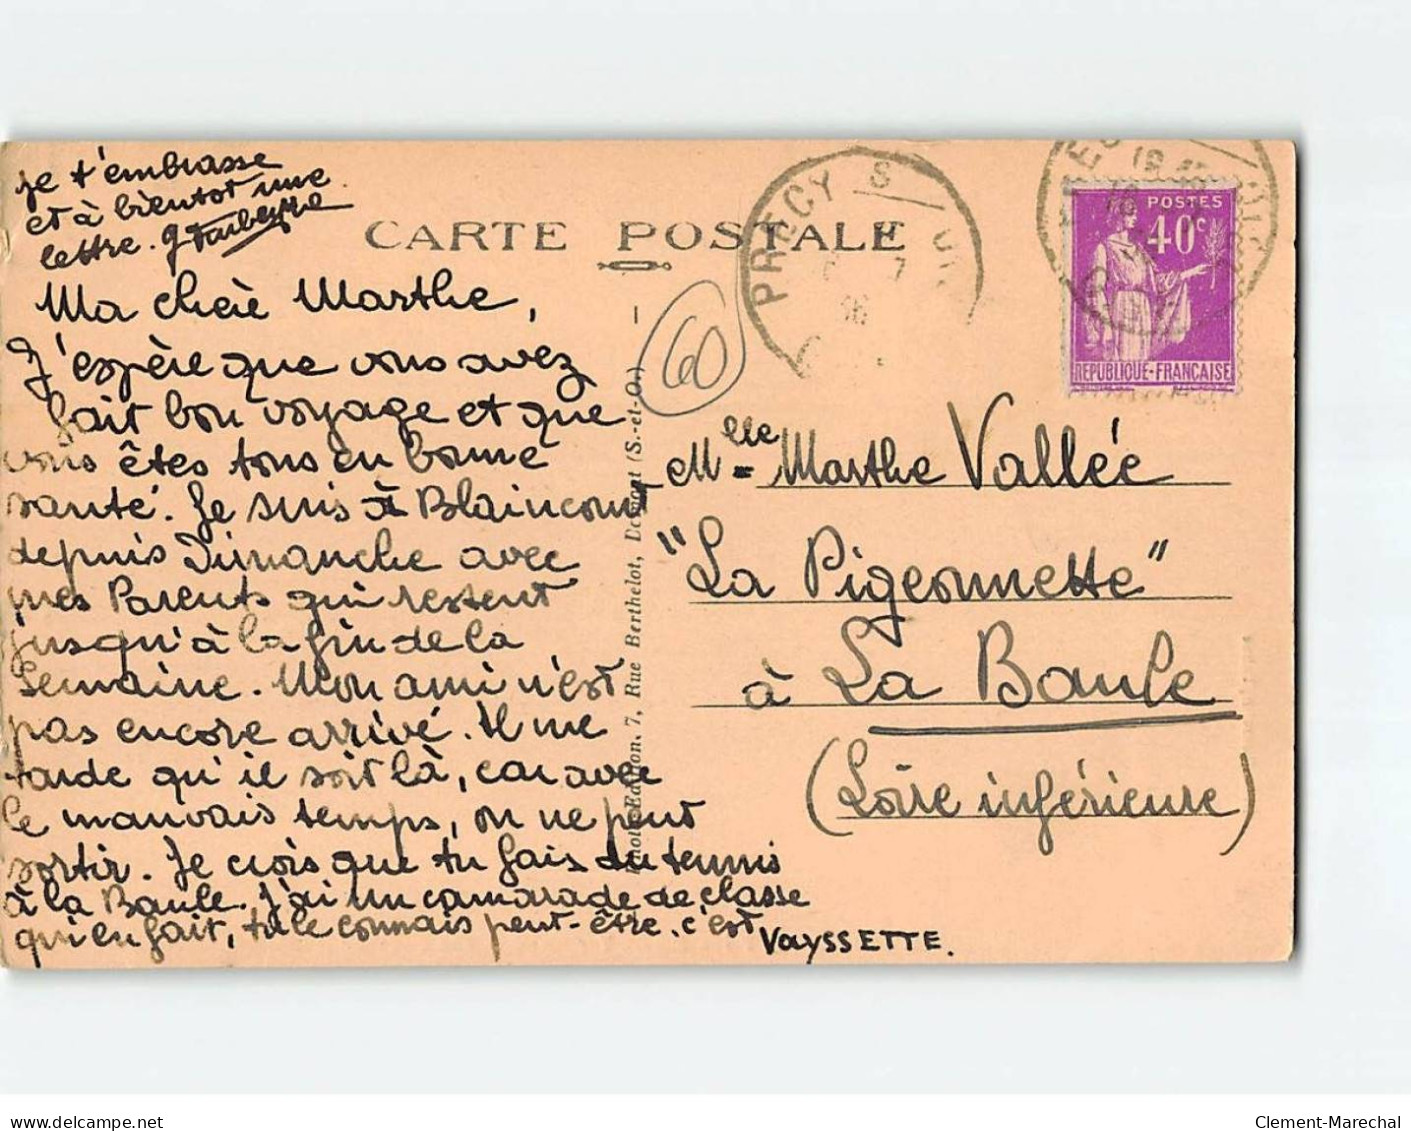 je t'embrasse
et à bientot une
lettre.
CARTE POSTALE
Ma chère Marthe,
J'espère que vous avez
fait bon voyage et que
vous êtes tous en bonne
santé. Je suis à Blaincourt
depuis Dimanche avec
mes Parents qui restent
jusqu'à la fin de la
semaine. Mon ami n'est
pas encore arrivé. Il me
tarde qu'il soit là, car avec
le mauvais temps, on ne peut
sortir. Je crois que tu fais du tennis
à la Baule. J'ai un camarade de classe
qui en fait, tu le connais peut-être. c'est
VAYSSETTE.
7, Rue Berthelot, (S.-et-O.)
60
PRECY S
POSTES
40c
REPUBLIQUE-FRANÇAISE
Mlle Marthe Vallée
"La Pigeonnette"
à La Baule
(Loire inférieure)
delcampe.net
Clement-Marechal